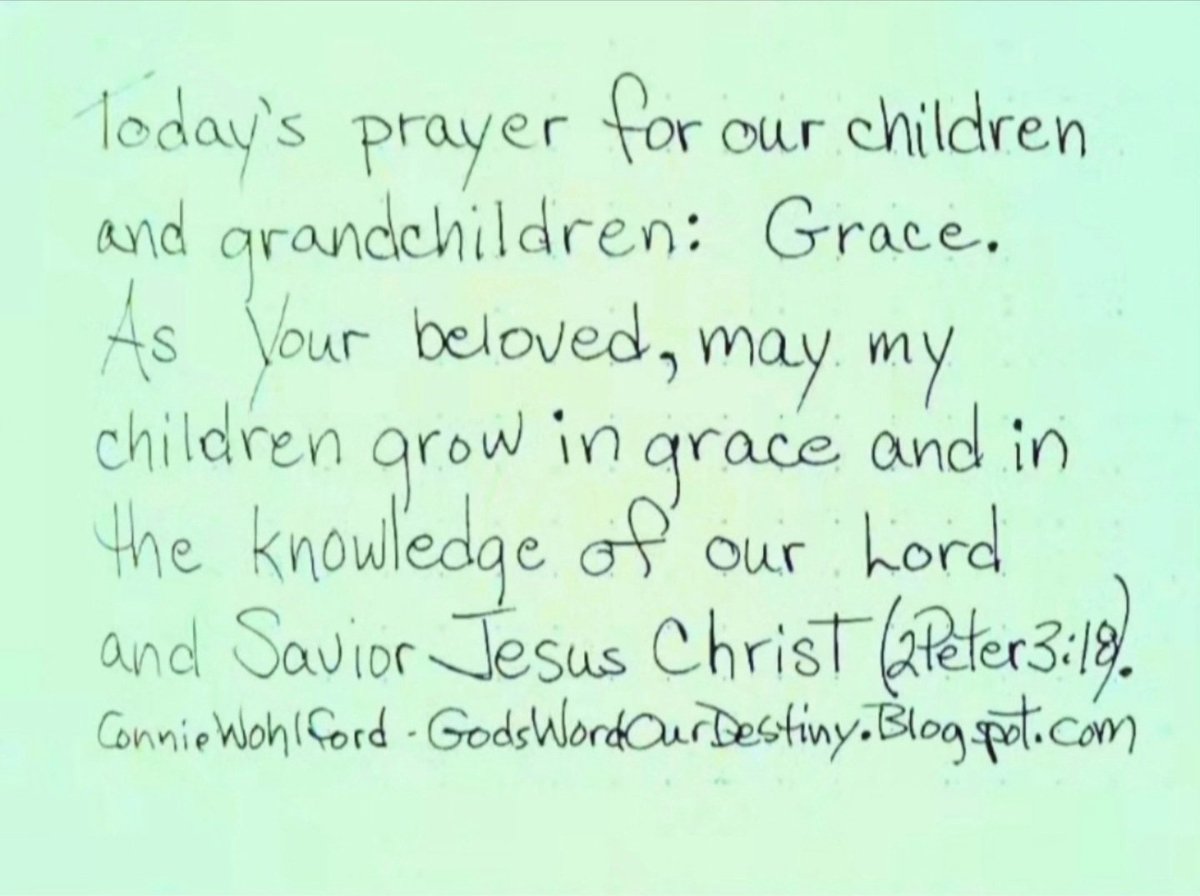 Today's prayer for our children
and grandchildren: Grace.
As Your beloved, may my
children grow in grace and in
the knowledge of our Lord
and Savior Jesus Christ (2Peter3:18).
Connie Wohlford - GodsWordOurDestiny.Blogspot.com